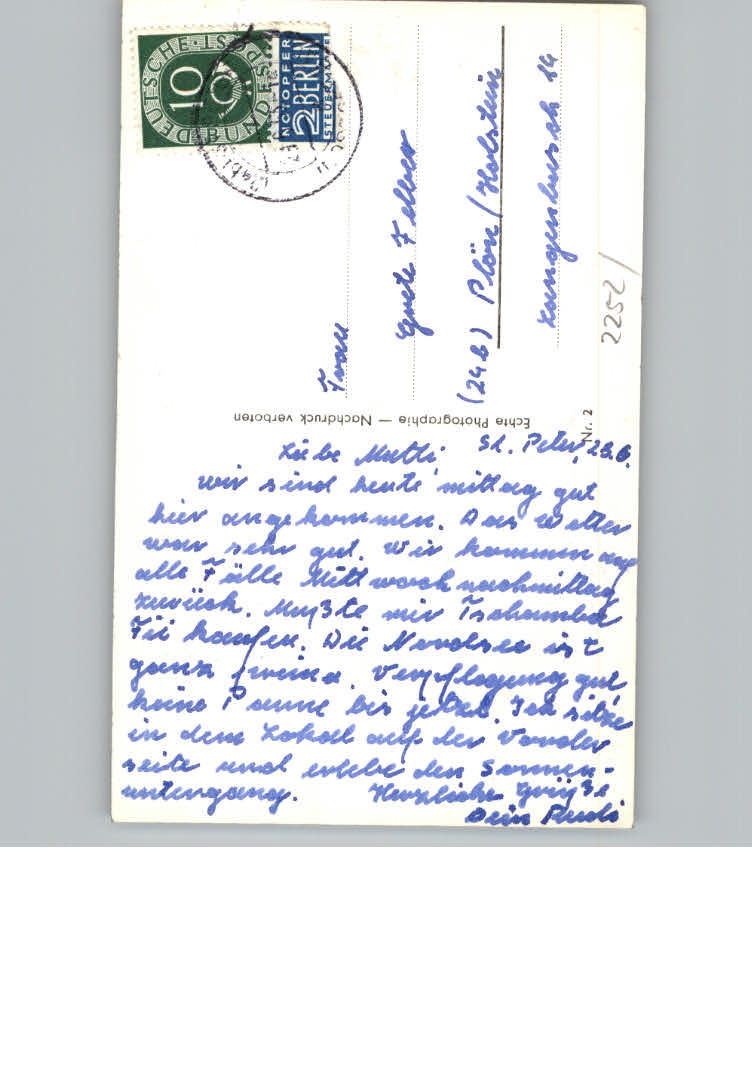 DEUTSCHE BUNDESPOST
10
NOTOPFER
2 BERLIN
STEUERMARKE
Frau
Grete Felber
(24b) Plön (Holstein
Langenbusch 14
2252/
Echte Photographie — Nachdruck verboten
Nr. 2
St. Peter, 23.6.
Liebe Mutti
wir sind heute mittag gut
hier angekommen. Das Wetter
war sehr gut. Wir kommen auf
alle Fälle Mittwoch nachmittag
zurück. Mußte mir
kaufen. Die Nordsee ist
ganz prima. Verpflegung gut,
keine Panne bis jetzt. Ich sitze
in dem Lokal auf der Vorder
seite und erlebe den Sonnen-
untergang. Herzliche Grüße
Dein Rudi